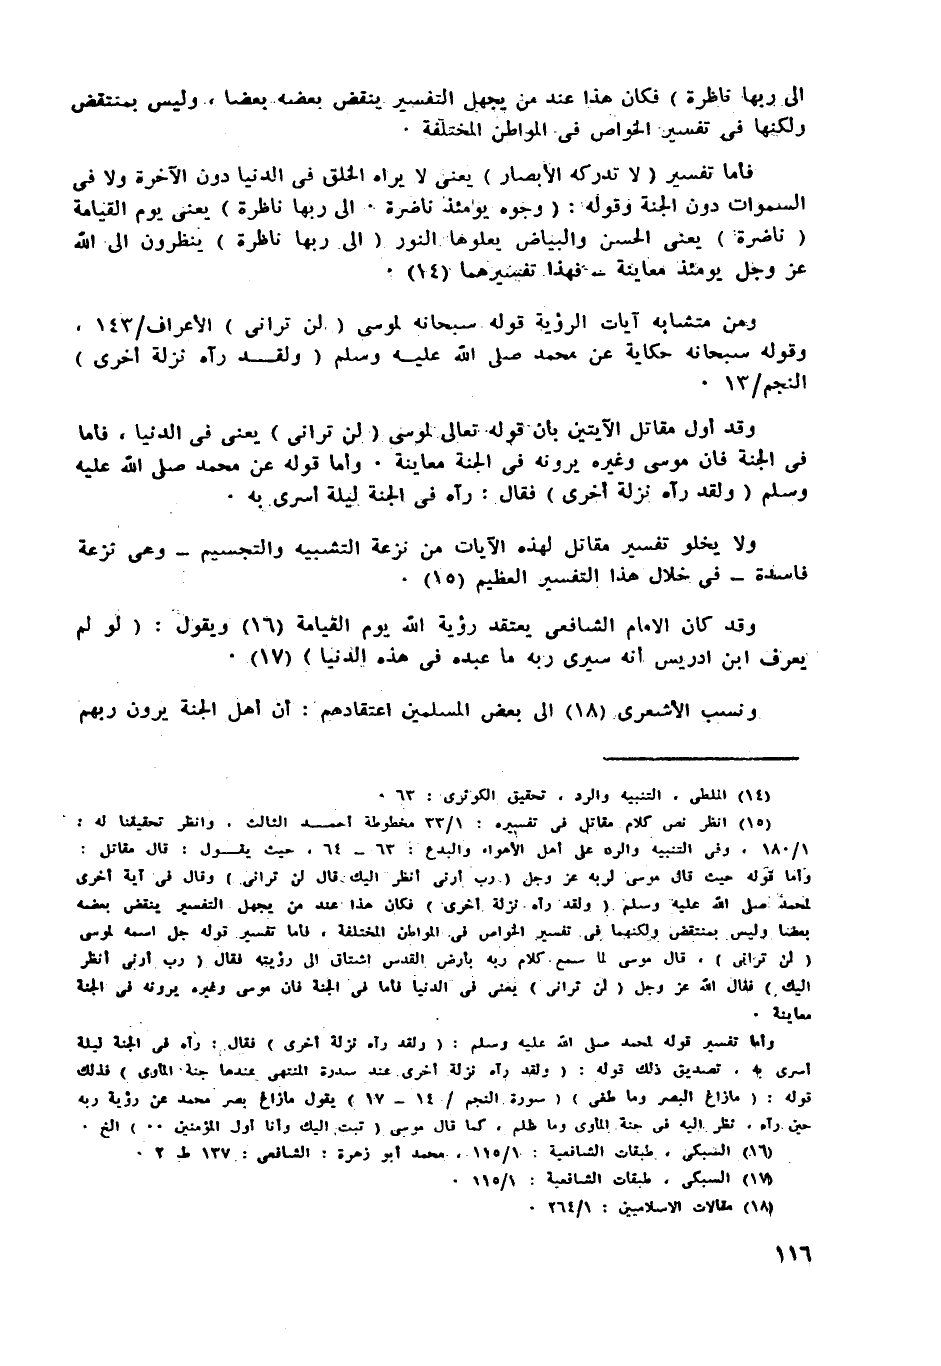 الى ربها ناظرة ) فكان هذا عند من يجهل التفسير ينقض بعضه بعضا ، وليس بمنتقض
ولكنها فى تفسير الخواص فى المواطن المختلفة ٠
فأما تفسير ( لا تدركه الأبصار ) يعنى لا يراه الخلق فى الدنيا دون الآخرة ولا فى
السموات دون الجنة وقوله : ( وجوه يومئذ ناضرة ٠ الى ربها ناظرة ) يعنى يوم القيامة
( ناضرة ) يعنى الحسن والبياض يعلوها النور ( الى ربها ناظرة ) ينظرون الى الله
عز وجل يومئذ معاينة ــ فهذا تفسيرهما (١٤) ٠
ومن متشابه آيات الرؤية قوله سبحانه لموسى ( لن ترانى ) الأعراف/١٤٣ ،
وقوله سبحانه حكاية عن محمد صلى الله عليه وسلم ( ولقد رآه نزلة أخرى )
النجم/١٣ ٠
وقد أول مقاتل الآيتين بأن قوله تعالى لموسى ( لن ترانى ) يعنى فى الدنيا ، فأما
فى الجنة فان موسى وغيره يرونه فى الجنة معاينة ٠ وأما قوله عن محمد صلى الله عليه
وسلم ( ولقد رآه نزلة أخرى ) فقال : رآه فى الجنة ليلة أسرى به ٠
ولا يخلو تفسير مقاتل لهذه الآيات من نزعة التشبيه والتجسيم ــ وهى نزعة
فاسدة ــ فى خلال هذا التفسير العظيم (١٥) ٠
وقد كان الامام الشافعى يعتقد رؤية الله يوم القيامة (١٦) ويقول : ( لو لم
يعرف ابن ادريس أنه سيرى ربه ما عبده فى هذه الدنيا ) (١٧) ٠
ونسب الأشعرى (١٨) الى بعض المسلمين اعتقادهم : أن أهل الجنة يرون ربهم
(١٤) الملطى ، التنبيه والرد ، تحقيق الكوثرى : ٦٣ ٠
(١٥) انظر نص كلام مقاتل فى تفسيره : ٢٣/١ مخطوطة أحمد الثالث ، وانظر تحقيقنا له :
١٨٠/١ ، وفى التنبيه والرد على أهل الأهواء والبدع : ٦٣ ــ ٦٤ ، حيث يقول : قال مقاتل :
وأما قوله حيث قال موسى لربه عز وجل ( رب أرنى أنظر اليك قال لن ترانى ) وقال فى آية أخرى
لمحمد صلى الله عليه وسلم ( ولقد رآه نزلة أخرى ) فكان هذا عند من يجهل التفسير ينقض بعضه
بعضا وليس بمنتقض ولكنهما فى تفسير الخواص فى المواطن المختلفة ، فأما تفسير قوله جل اسمه لموسى
( لن ترانى ) ، قال موسى لما سمع كلام ربه بأرض القدس اشتاق الى رؤيته فقال ( رب أرنى أنظر
اليك ) فقال الله عز وجل ( لن ترانى ) يعنى فى الدنيا فأما فى الجنة فان موسى وغيره يرونه فى الجنة
معاينة ٠
وأما تفسير قوله لمحمد صلى الله عليه وسلم : ( ولقد رآه نزلة أخرى ) فقال : رآه فى الجنة ليلة
أسرى به ، تصديق ذلك قوله : ( ولقد رآه نزلة أخرى عند سدرة المنتهى عندها جنة المأوى ) فذلك
قوله : ( مازاغ البصر وما طغى ) ( سورة النجم / ١٤ ــ ١٧ ) يقول مازاغ بصر محمد عن رؤية ربه
حين رآه ، نظر اليه فى جنة المأوى وما ظلم ، كما قال موسى ( تبت اليك وأنا أول المؤمنين ٠٠ ) الخ ٠
(١٦) السبكى ، طبقات الشافعية : ١١٥/١ ، محمد أبو زهرة : الشافعى : ١٣٧ ط ٢ ٠
(١٧) السبكى ، طبقات الشافعية : ١١٥/١ ٠
(١٨) مقالات الاسلاميين : ٢٦٤/١ ٠
١١٦